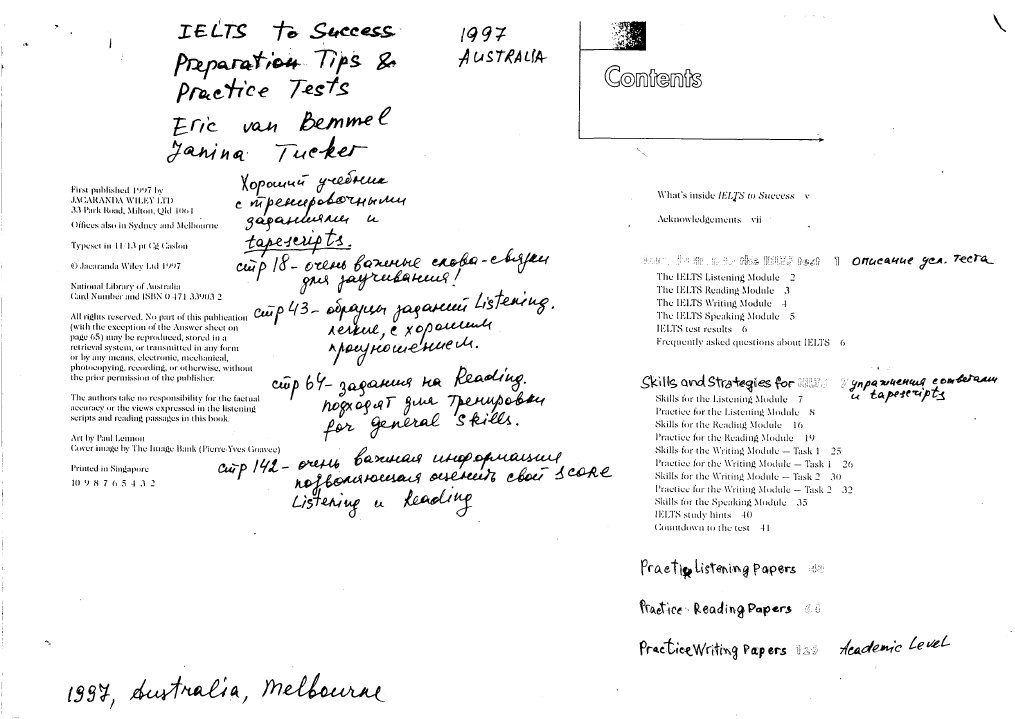 IELTS to Success
Preparation Tips &
Practice Tests
Eric van Bemmel
Janina Tucker
1997
AUSTRALIA
Хороший учебник
с тренировочными
заданиями и
tapescripts.
стр 18 – очень важные слова-связки
для заучивания!
стр 43 – образцы заданий Listening.
легкие, с хорошим
произношением.
стр 64 – задания на Reading.
подходят для тренировки
for general skills.
стр 142 – очень важная информация
позволяющая оценить свой score
Listening и Reading
First published 1997 by
JACARANDA WILEY LTD
33 Park Road, Milton, Qld 4064
Offices also in Sydney and Melbourne
Typeset in 11/13 pt Cg Caslon
© Jacaranda Wiley Ltd 1997
National Library of Australia
Card Number and ISBN 0 471 33903 2
All rights reserved. No part of this publication
(with the exception of the Answer sheet on
page 65) may be reproduced, stored in a
retrieval system, or transmitted in any form
or by any means, electronic, mechanical,
photocopying, recording, or otherwise, without
the prior permission of the publisher.
The authors take no responsibility for the factual
accuracy or the views expressed in the listening
scripts and reading passages in this book.
Art by Paul Lennon
Cover image by The Image Bank (Pierre-Yves Goavec)
Printed in Singapore
10 9 8 7 6 5 4 3 2
1997, Australia, Melbourne
Contents
What's inside IELTS to Success v
Acknowledgements vii
to the IELTS test 1 описание усл. теста
The IELTS Listening Module 2
The IELTS Reading Module 3
The IELTS Writing Module 4
The IELTS Speaking Module 5
IELTS test results 6
Frequently asked questions about IELTS 6
Skills and Strategies for IELTS 7 упражнения с ответами
и tapescripts
Skills for the Listening Module 7
Practice for the Listening Module 8
Skills for the Reading Module 16
Practice for the Reading Module 19
Skills for the Writing Module — Task 1 25
Practice for the Writing Module — Task 1 26
Skills for the Writing Module — Task 2 30
Practice for the Writing Module — Task 2 32
Skills for the Speaking Module 35
IELTS study hints 40
Countdown to the test 41
Practice Listening Papers
Practice Reading Papers
Practice Writing Papers Academic Level